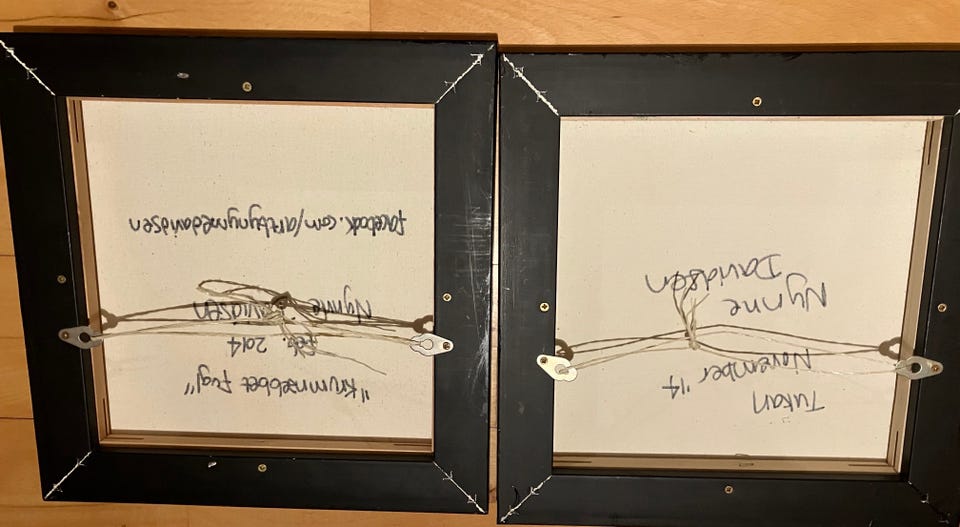 "Krumnæbbet fugl"
Feb. 2014
Nynne Davidsen
facebook.com/artbynynnedavidsen
Tukan
November '14
Nynne
Davidsen